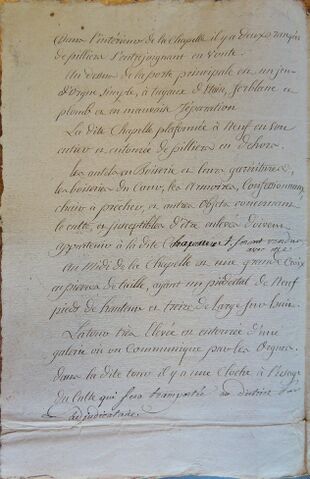 Dans l'intérieur de la Chapelle il y a deux rangés
de pilliers s'entrejoignant en voute.
Au dessus de la porte principale est un jeu
d'Orgue simple, à tuyaux d'Etain, fer blanc et
plomb et en mauvaise réparation
La dite Chapelle plafonnée à Neuf en son
entier et entourée de pilliers en dehors.
Les autels en Boiserie et leurs garnitures,
les boiseries du Cœur, les Armoires, Confessionnaux,
chaire à précher, et autres objets concernant
le culte, et susceptibles d'être enlevés doivent
appartenir à la dite Chapelle et seront vendus
avec
Au Midi de la Chapelle est une grande Croix
en pierres de taille, ayant un piédestal de Neuf
pieds de hauteur et treize de large sur
La tour très Elevée est entourée d'une
galerie où on Communique par les Orgues.
dans la dite tour il y a une Cloche à l'usage
du Culte qui sera transportée au district par
adjudicataire.